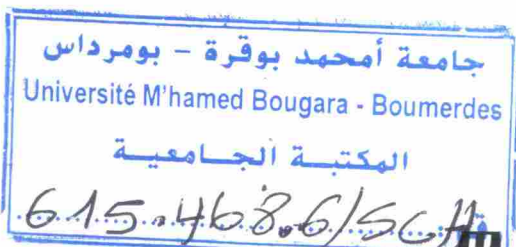 جامعة أمحمد بوقرة - بومرداس
Université M'hamed Bougara - Boumerdes
المكتبة الجامعية
615.468.6/SCH